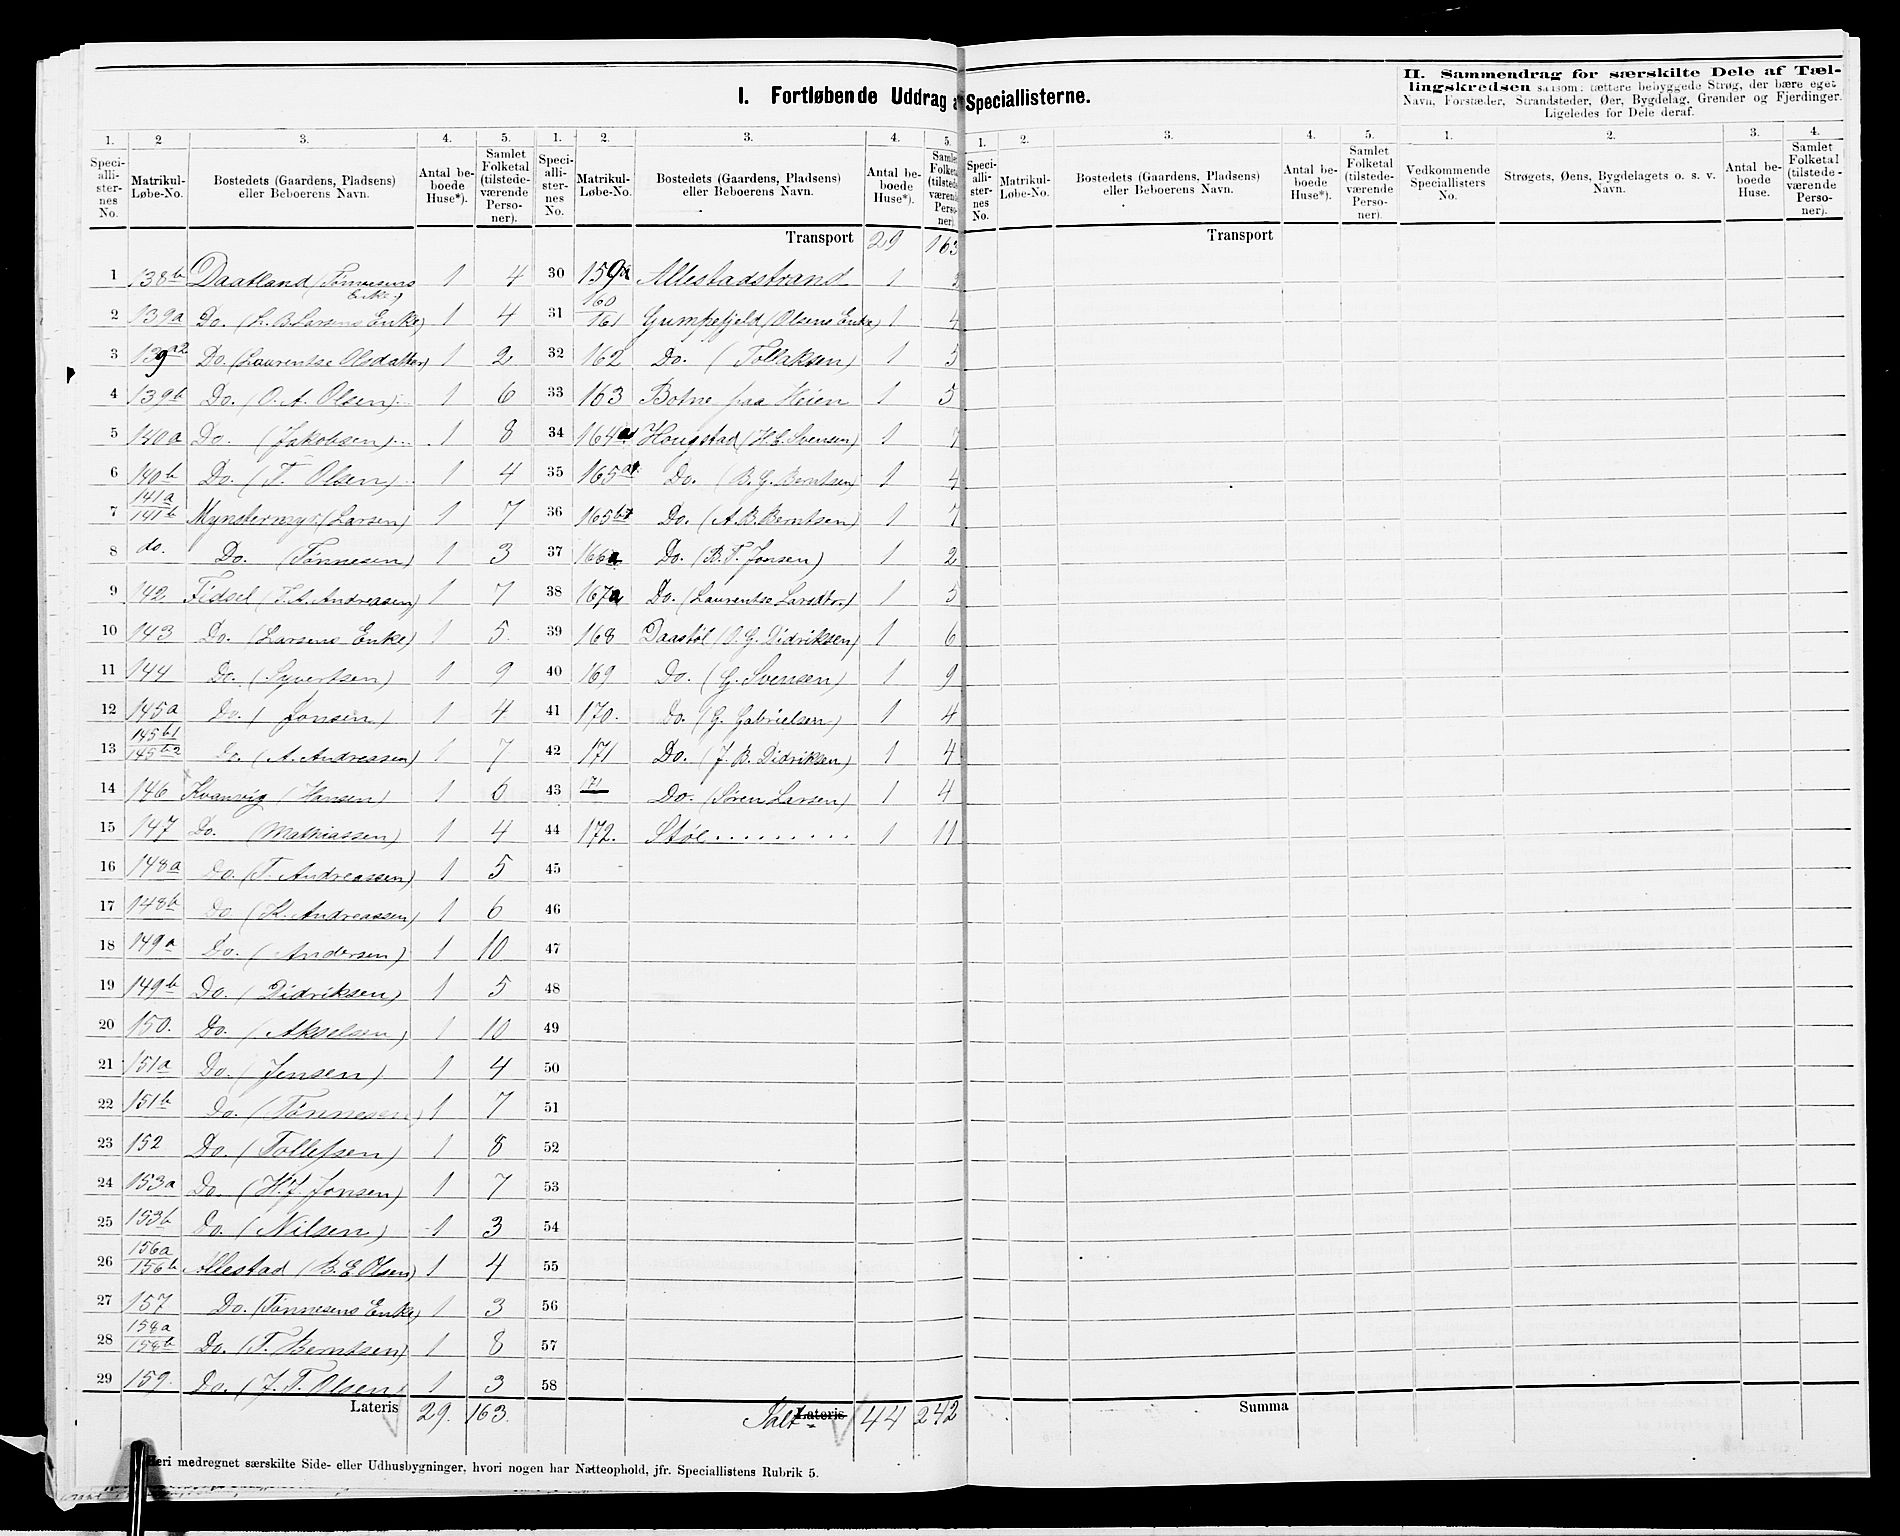 I. Fortløbende Uddrag a Speciallisterne.
II. Sammendrag for særskilte Dele af Tæl-
lingskredsen saasom: tættere bebyggede Strøg, der bære eget
Navn, Forstæder, Strandsteder, Øer, Bygdelag, Grender og Fjerdinger.
Ligeledes for Dele deraf.
1. 2 3. 4. 5. 1. 2. 3. 4. 5. 1. 2. 3. 4. 5. 1. 2. 3. 4.
Speci-alli-ster-nes No. Matrikul-Løbe-No. Bostedets (Gaardens, Pladsens) eller Beboerens Navn. Antal be-boede Huse*). Samlet Folketal (tilstede-værende Perso-ner).
Speci-alli-ster-nes No. Matrikul-Løbe-No. Bostedets (Gaardens, Pladsens) eller Beboerens Navn. Antal be-boede Huse*). Samlet Folketal (tilstede-værende Perso-ner)
Speci-alli-ster-nes No. Matrikul-Løbe-No. Bostedets (Gaardens, Pladsens) eller Beboerens Navn. Antal be-boede Huse*). Samlet Folketal (tilstede-værende Perso-ner).
Vedkommende Speciallisters No. Strøgets, Øens, Bygdelagets o. s. v. Navn. Antal be-boede Huse. Samlet Folketal (tilstede-værende Perso-ner).
Transport 29 163
Transport
1 138b Daatland (Tønnesens Enke) 1 4
2 139a Do. (L. B. Larsens Enke) 1 4
3 139a2 Do. (Laurentse Olsdatter) 1 2
4 139b Do. (O. A. Olsen) 1 6
5 140a Do. (Jakobsen) 1 8
6 140b Do. (T. Olsen) 1 4
7 141a 141b Mynstermyr (Larsen) 1 7
8 do. Do. (Tønnesen) 1 3
9 142 Fidsel (T. A. Andreasen) 1 7
10 143 Do. (Larsens Enke) 1 5
11 144 Do. (Syvertsen) 1 9
12 145a Do. (Jonsen) 1 4
13 145b1 145b2 Do. (A. Andreasen) 1 7
14 146 Kvanvig (Hansen) 1
15 147 Do. (Mathiassen) 1 4
16 148a Do. (T. Andreassen) 1 5
17 148b Do. (K. Andreassen) 1 6
18 149a Do. (Andersen) 1 10
19 149b Do. (Didriksen) 1 5
20 150. Do. (Akselsen) 1 10
21 151a Do. (Jensen) 1 4
22 151b Do. (Tønnesen) 1 7
23 152 Do. (Tollefsen) 1 8
24 153a Do. (H. J. Jonsen) 1 7
25 153b Do. (Nilsen) 1 3
26 156a 156b Allestad (B. E. Olsen) 1 4
27 157 Do. (Tønnesens Enke) 1 3
28 158a 158b Do. (T. Berntsen) 1 8
29 159. Do. (J. T. Olsen) 1 3
Lateris 29. 163.
30 159a Allestadstrand 1
31 160 161 Gumpefjeld (Olsens Enke) 1 4
32 162 Do. (Tollaksen) 1 5
33 163 Botne paa Heien 1 5
34 164a Hougstad (H. C. Svensen) 1 7
35 165a Do. (B. G. Berntsen) 1 4
36 165b Do. (A. B. Berntsen) 1 7
37 166a Do. (B. T. Jonsen) 1 2
38 167a Do. (Laurentse Larsdtr.) 1 5
39 168 Daastøl (O. G. Didriksen) 1 6
40 169 Do. (G. Svensen) 1 9
41 170. Do. (G. Gabrielsen) 1 4
42 171 Do. (J. B. Didriksen) 1 4
43 171 Do. (Søren Larsen) 1 4
44 172. Støl 1 11
45
46
47
48
49
50
51
52
53
54
55
56
57
58
Ialt Lateris 44 242
Summa
Heri medregnet særskilte Side- eller Udhusbygninger, hvori nogen har Natteophold, jfr. Speciallistens Rubrik 5.